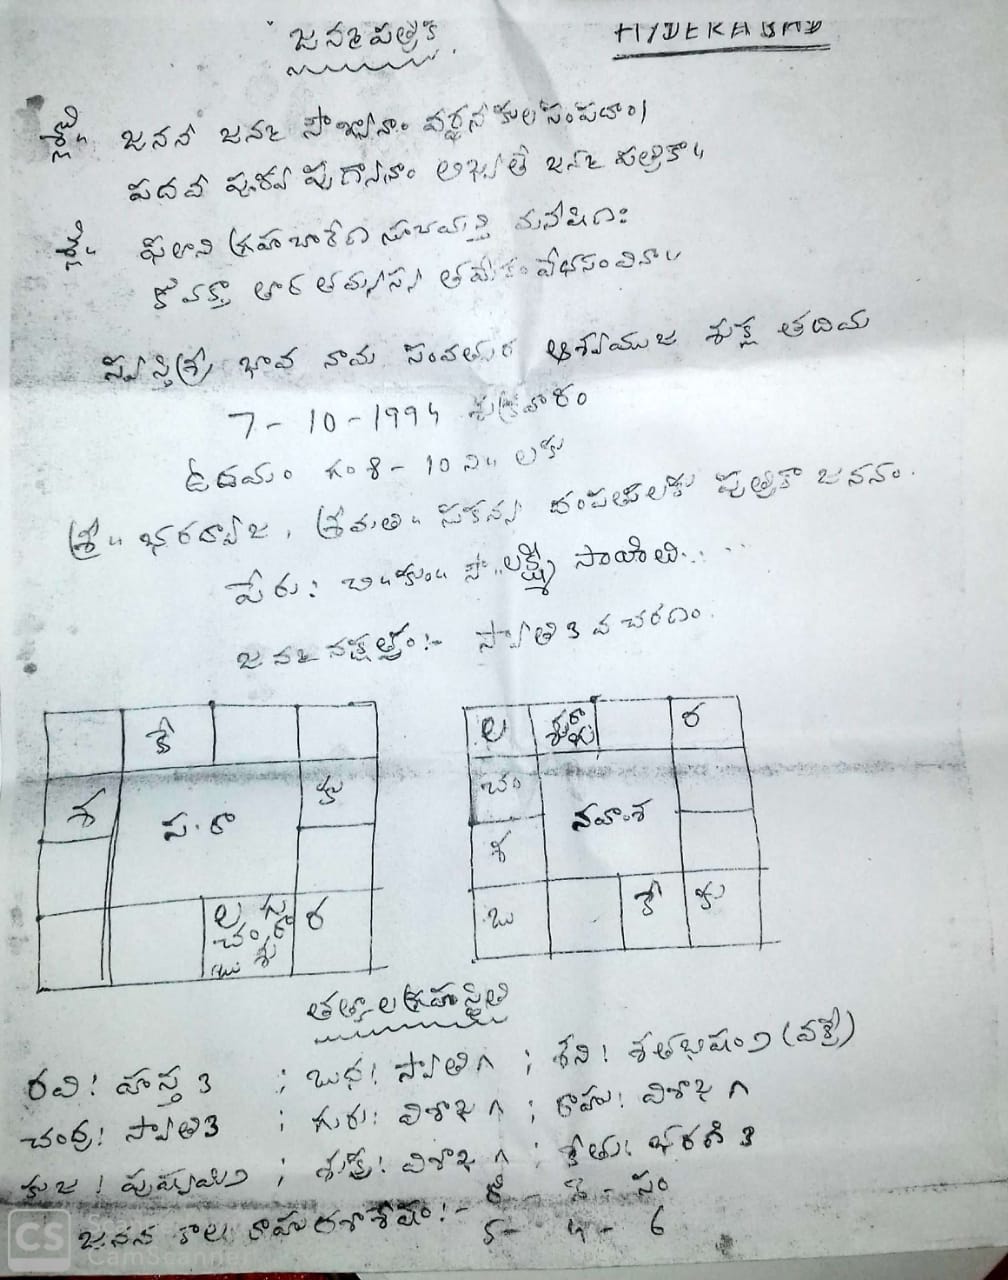 జన్మపత్రిక
HYDERABAD
శ్లో॥ జనని జన్మ సౌఖ్యానాం వర్ధని కుల సంపదాం।
పదవి పూర్వ పుణ్యానాం లిఖ్యతే జన్మ పత్రికా॥
శ్లో॥ ఫలాని గ్రహచారేణ సూచయన్తి మనీషిణః
కోవక్తా తారతమ్యస్య తమేకం వేధసంవినా॥
స్వస్తిశ్రీ భావ నామ సంవత్సర ఆశ్వయుజ శుక్ల తదియ
7-10-1994 శుక్రవారం
ఉదయం గం 8-10 ని॥ లకు
శ్రీ॥ భరద్వాజ, శ్రీమతి॥ సుకన్య దంపతులకు పుత్రికా జననం.
పేరు: చి॥కుం॥సౌ.. లక్ష్మీ సాయి
జన్మ నక్షత్రం:- స్వాతి 3 వ చరణం.
కే
శ
కు
ల గు
చం రా
బు శు
ర
ల
శు రా గు
ర
చం
నవాంశ
శ
బు
కే
కు
తత్కాల గ్రహస్థితి
రవి: హస్త 3 ; బుధ: స్వాతి ౧ ; శని: శతభిషం ౨ (వక్రీ)
చంద్ర: స్వాతి 3 ; గురు: విశాఖ ౧ ; రాహు: విశాఖ ౧
కుజ: పుష్యమి ౨ ; శుక్ర: విశాఖ ౧ ; కేతు: భరణి 3
జనన కాల రాహుదశా శేషం:-
5 - 4 - 6
CS
CamScanner